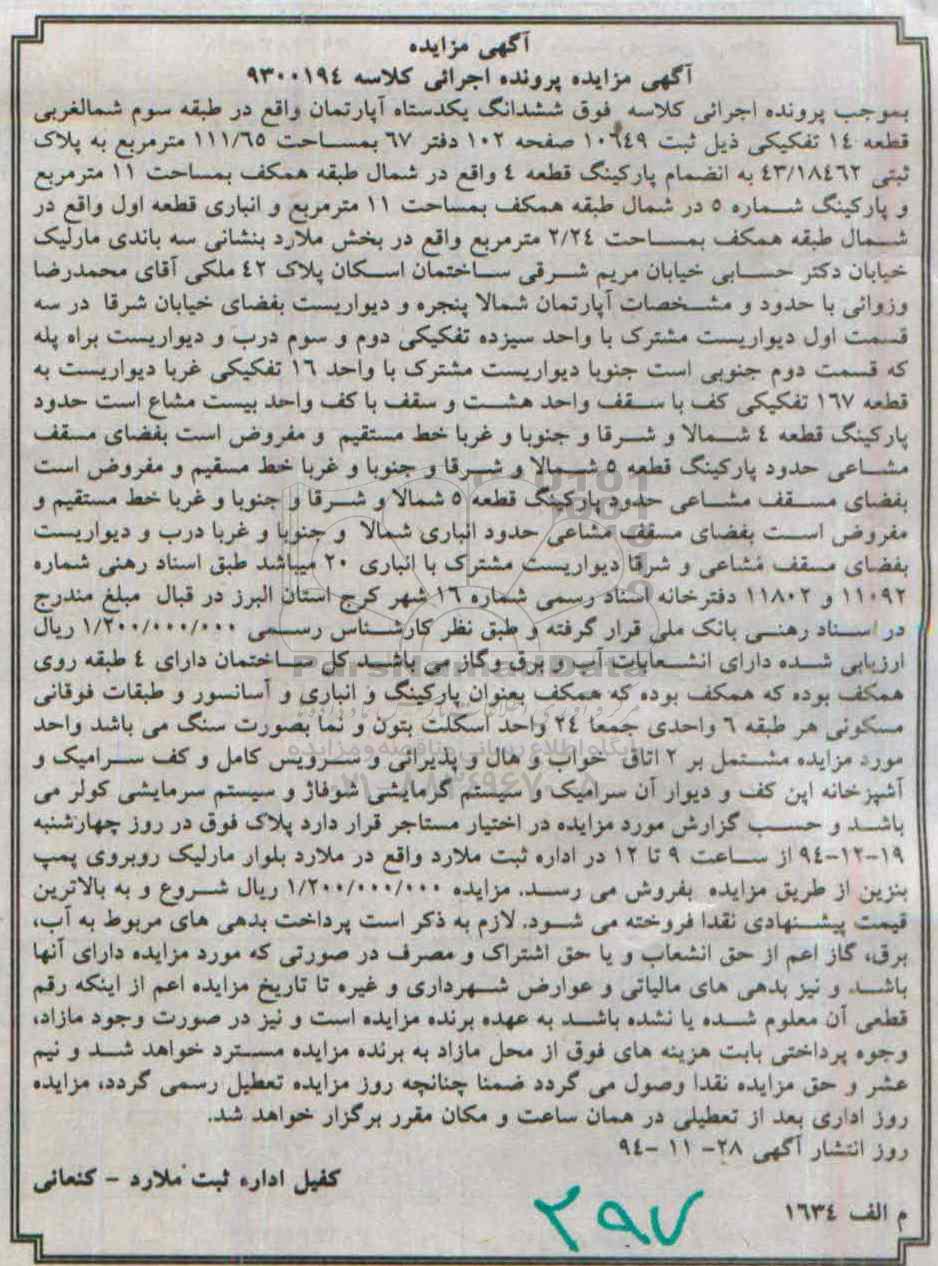 آگهی مزایده
آگهی مزایده پرونده اجرائی کلاسه ۹۳۰۰۱۹۴
بموجب پرونده اجرائی کلاسه فوق ششدانگ یکدستاه آپارتمان واقع در طبقه سوم شمالغربی
قطعه ۱۴ تفکیکی ذیل ثبت ۱۰۶۴۹ صفحه ۱۰۲ دفتر ۶۷ بمساحت ۱۱۱/۶۵ مترمربع به پلاک
ثبتی ۴۳/۱۸۴۶۲ به انضمام پارکینگ قطعه ۴ واقع در شمال طبقه همکف بمساحت ۱۱ مترمربع
و پارکینگ شماره ۵ در شمال طبقه همکف بمساحت ۱۱ مترمربع و انباری قطعه اول واقع در
شمال طبقه همکف بمساحت ۲/۲۴ مترمربع واقع در بخش ملارد بنشانی سه باندی مارلیک
خیابان دکتر حسابی خیابان مریم شرقی ساختمان اسکان پلاک ۴۲ ملکی آقای محمدرضا
وزوائی با حدود و مشخصات آپارتمان شمالا پنجره و دیواریست بفضای خیابان شرقا در سه
قسمت اول دیواریست مشترک با واحد سیزده تفکیکی دوم و سوم درب و دیواریست براه پله
که قسمت دوم جنوبی است جنوبا دیواریست مشترک با واحد ۱۶ تفکیکی غربا دیواریست به
قطعه ۱۶۷ تفکیکی کف با سقف واحد هشت و سقف با کف واحد بیست مشاع است حدود
پارکینگ قطعه ۴ شمالا و شرقا و جنوبا و غربا خط مستقیم و مفروض است بفضای مسقف
مشاعی حدود پارکینگ قطعه ۵ شمالا و شرقا و جنوبا و غربا خط مسقیم و مفروض است
بفضای مسقف مشاعی حدود پارکینگ قطعه ۵ شمالا و شرقا و جنوبا و غربا خط مستقیم و
مفروض است بفضای مسقف مشاعی حدود انباری شمالا و جنوبا و غربا درب و دیواریست
بفضای مسقف مشاعی و شرقا دیواریست مشترک با انباری ۲۰ میباشد طبق اسناد رهنی شماره
۱۱۰۹۲ و ۱۱۸۰۲ دفترخانه اسناد رسمی شماره ۱۶ شهر کرج استان البرز در قبال مبلغ مندرج
در اسناد رهنی بانک ملی قرار گرفته و طبق نظر کارشناس رسمی ۱/۲۰۰/۰۰۰/۰۰۰ ریال
ارزیابی شده دارای انشعابات آب و برق وگاز می باشد کل ساختمان دارای ۴ طبقه روی
همکف بوده که همکف بوده که همکف بعنوان پارکینگ و انباری و آسانسور و طبقات فوقانی
مسکونی هر طبقه ۶ واحدی جمعا ۲۴ واحد اسکلت بتون و نما بصورت سنگ می باشد واحد
مورد مزایده مشتمل بر ۲ اتاق خواب و هال و پذیرائی و سرویس کامل و کف سرامیک و
آشپزخانه اپن کف و دیوار آن سرامیک و سیستم گرمایشی شوفاژ و سیستم سرمایشی کولر می
باشد و حسب گزارش مورد مزایده در اختیار مستاجر قرار دارد پلاک فوق در روز چهارشنبه
۱۹-۱۲-۹۴ از ساعت ۹ تا ۱۲ در اداره ثبت ملارد واقع در ملارد بلوار مارلیک روبروی پمپ
بنزین از طریق مزایده بفروش می رسد. مزایده ۱/۲۰۰/۰۰۰/۰۰۰ ریال شروع و به بالاترین
قیمت پیشنهادی نقدا فروخته می شود. لازم به ذکر است پرداخت بدهی های مربوط به آب،
برق، گاز اعم از حق انشعاب و یا حق اشتراک و مصرف در صورتی که مورد مزایده دارای آنها
باشد و نیز بدهی های مالیاتی و عوارض شهرداری و غیره تا تاریخ مزایده اعم از اینکه رقم
قطعی آن معلوم شده یا نشده باشد به عهده برنده مزایده است و نیز در صورت وجود مازاد،
وجوه پرداختی بابت هزینه های فوق از محل مازاد به برنده مزایده مسترد خواهد شد و نیم
عشر و حق مزایده نقدا وصول می گردد ضمنا چنانچه روز مزایده تعطیل رسمی گردد، مزایده
روز اداری بعد از تعطیلی در همان ساعت و مکان مقرر برگزار خواهد شد.
روز انتشار آگهی ۲۸- ۱۱ -۹۴
کفیل اداره ثبت ملارد - کنعانی
م الف ۱۶۳۴
۲۹۷
ParsNamadData